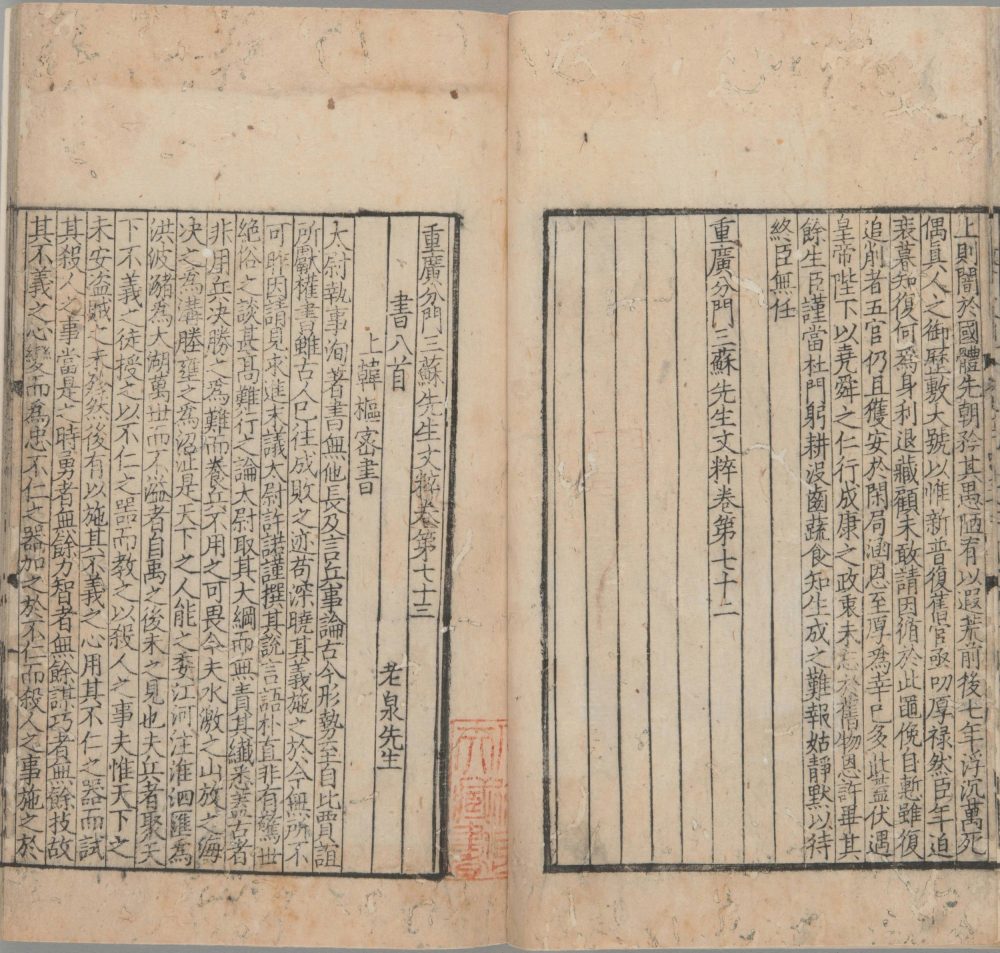 上則闇於國體先朝矜其愚陋有以遐荒前後七年浮沉萬死
偶真人之御歷敷大號以惟新普復舊官亟叨厚祿然臣年迫
衰暮知復何爲身利退藏顧未敢請因循於此黽俛自慙雖復
追削者五官仍且獲安於閑局涵恩至厚爲幸已多此蓋伏遇
皇帝陛下以堯舜之仁行成康之政衷未忘於舊物恩許畢其
餘生臣謹當杜門躬耕沒齒蔬食知生成之難報姑靜默以待
終臣無任
重廣分門三蘇先生文粹卷第七十二
重廣分門三蘇先生文粹卷第七十三
書八首
上韓樞密書 老泉先生
太尉執事洵著書無他長及言兵事論古今形勢至自比賈誼
所獻權書雖古人已往成敗之迹苟深曉其義施之於今無所不
可昨因請見求進末議太尉許諾謹撰其說言語朴直非有驚世
絕俗之談甚高難行之論太尉取其大綱而無責其纖悉蓋古者
非用兵決勝之爲難而養兵不用之可畏今夫水激之山放之海
决之爲溝塍壅之爲沼沚是天下之人能之委江河注淮泗匯爲
洪波瀦爲大湖萬世而不溢者自禹之後未之見也夫兵者聚天
下不義之徒授之以不仁之器而教之以殺人之事夫惟天下之
未安盜賊之未殄然後有以施其不義之心用其不仁之器而試
其殺人之事當是之時勇者無餘力智者無餘謀巧者無餘技故
其不義之心變而爲忠不仁之器加之於不仁而殺人之事施之於